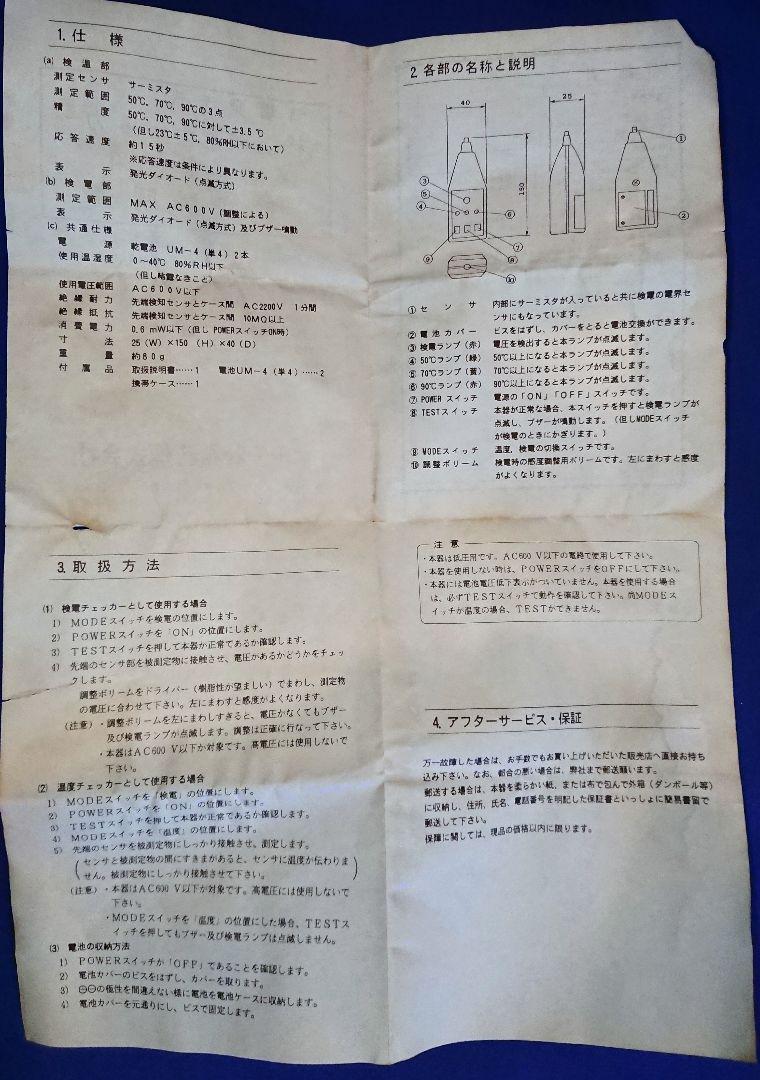 1.仕 様
(a) 検温部
測定センサ サーミスタ
測定範囲 50℃, 70℃, 90℃の3点
精度 50℃, 70℃, 90℃に対して±3.5℃
(但し23℃±5℃, 80%RH以下において)
応答速度 約15秒
※応答速度は条件により異なります。
表示 発光ダイオード(点滅方式)
(b) 検電部
測定範囲 MAX AC600V(調整による)
表示 発光ダイオード(点滅方式)及びブザー鳴動
(c) 共通仕様
電源 乾電池 UM-4(単4)2本
使用温湿度 0~40℃ 80%RH以下
(但し結露なきこと)
使用電圧範囲 AC600V以下
絶縁耐力 先端検知センサとケース間 AC2200V 1分間
絶縁抵抗 先端検知センサとケース間 10MΩ以上
消費電力 0.6mW以下(但しPOWERスイッチON時)
寸法 25(W)×150(H)×40(D)
重量 約80g
付属品 取扱説明書……1 電池UM-4(単4)……2
携帯ケース……1
2.各部の名称と説明
40
25
150
①
②
③
⑤
④
⑥
⑦
⑧
⑨
⑩
① センサ 内部にサーミスタが入っていると共に検電の電界セ
ンサにもなっています。
② 電池カバー ビスをはずし、カバーをとると電池交換ができます。
③ 検電ランプ(赤) 電圧を検出すると本ランプが点滅します。
④ 50℃ランプ(緑) 50℃以上になると本ランプが点滅します。
⑤ 70℃ランプ(黄) 70℃以上になると本ランプが点滅します。
⑥ 90℃ランプ(赤) 90℃以上になると本ランプが点滅します。
⑦ POWER スイッチ 電源の「ON」「OFF」スイッチです。
⑧ TESTスイッチ 本器が正常な場合、本スイッチを押すと検電ランプが
点滅し、ブザーが鳴動します。(但しMODEスイッチ
が検電のときにかぎります。)
⑨ MODEスイッチ 温度, 検電の切換スイッチです。
⑩ 調整ボリーム 検電時の感度調整用ボリームです。左にまわすと感度
がよくなります。
注 意
・本器は低圧用です。AC600 V以下の電路で使用して下さい。
・本器を使用しない時は、POWERスイッチをOFFにして下さい。
・本器には電池電圧低下表示がついていません。本器を使用する場合
は、必ずTESTスイッチで動作を確認して下さい。尚MODEス
イッチが温度の場合、TESTができません。
3.取扱方法
(1) 検電チェッカーとして使用する場合
1) MODEスイッチを検電の位置にします。
2) POWERスイッチを「ON」の位置にします。
3) TESTスイッチを押して本器が正常であるか確認します。
4) 先端のセンサ部を被測定物に接触させ、電圧があるかどうかをチェッ
クします。
調整ボリームをドライバー(樹脂性が望ましい)でまわし、測定物
の電圧に合わせて下さい。左にまわすと感度がよくなります。
(注意)・調整ボリームを左にまわしすぎると、電圧がなくてもブザー
及び検電ランプが点滅します。調整は正確に行なって下さい。
・本器はAC600 V以下が対象です。高電圧には使用しないで
下さい。
(2) 温度チェッカーとして使用する場合
1) MODEスイッチを「検電」の位置にします。
2) POWERスイッチを「ON」の位置にします。
3) TESTスイッチを押して本器が正常であるか確認します。
4) MODEスイッチを「温度」の位置にします。
5) 先端のセンサを被測定物にしっかり接触させ、測定します。
(センサと被測定物の間にすきまがあると、センサに温度が伝わりま
せん。被測定物にしっかり接触させて下さい。)
(注意)・本器はAC600 V以下が対象です。高電圧には使用しないで
下さい。
・MODEスイッチを「温度」の位置にした場合、TESTス
イッチを押してもブザー及び検電ランプは点滅しません。
(3) 電池の収納方法
1) POWERスイッチが「OFF」であることを確認します。
2) 電池カバーのビスをはずし、カバーを取ります。
3) ⊕⊖の極性を間違えない様に電池を電池ケースに収納します。
4) 電池カバーを元通りにし、ビスで固定します。
4.アフターサービス・保証
万一故障した場合は、お手数でもお買い上げいただいた販売店へ直接お持ち
込み下さい。なお、都合の悪い場合は、弊社まで郵送願います。
郵送する場合は、本器を柔らかい紙、または布で包んで外箱(ダンボール等)
に収納し、住所、氏名、電話番号を明記した保証書といっしょに簡易書留で
郵送して下さい。
保障に関しては、現品の価格以内に限ります。